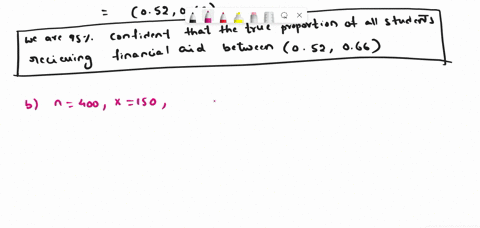 = (0.52, 0.
we are 95%. confident that the true proportion of all students
recieving financial aid between (0.52, 0.66)
b) n = 400, x = 150,